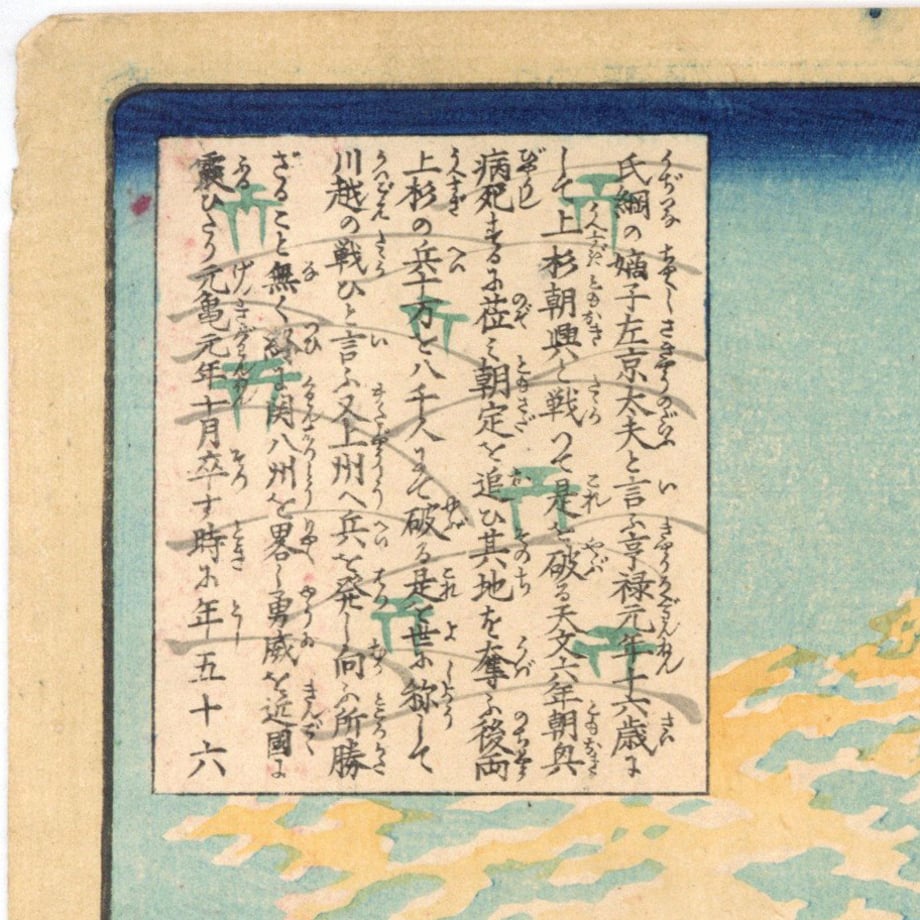 氏綱の嫡子左京太夫と言ふ亨禄元年十六歳に
して上杉朝興と戦つて是を破る天文六年朝興
病死するに莅み朝定を追ひ其地を奪ふ後両
上杉の兵十万を八千人にて破る是を世に称して
川越の戦ひと言ふ又上州へ兵を発し向ふ所勝
ざること無く終に関八州を畧し勇威を近國に
震ひたり元亀元年十月卒す時に年五十六